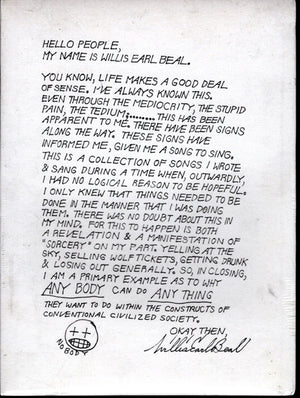 HELLO PEOPLE,
MY NAME IS WILLIS EARL BEAL.
YOU KNOW, LIFE MAKES A GOOD DEAL
OF SENSE. I'VE ALWAYS KNOWN THIS.
EVEN THROUGH THE MEDIOCRITY, THE STUPID
PAIN, THE TEDIUM......... THIS HAS BEEN
APPARENT TO ME. THERE HAVE BEEN SIGNS
ALONG THE WAY. THESE SIGNS HAVE
INFORMED ME, GIVEN ME A SONG TO SING.
THIS IS A COLLECTION OF SONGS I WROTE
& SANG DURING A TIME WHEN, OUTWARDLY,
I HAD NO LOGICAL REASON TO BE HOPEFUL.
I ONLY KNEW THAT THINGS NEEDED TO BE
DONE IN THE MANNER THAT I WAS DOING
THEM. THERE WAS NO DOUBT ABOUT THIS IN
MY MIND. FOR THIS TO HAPPEN IS BOTH
A REVELATION & A MANIFESTATION OF
"SORCERY" ON MY PART. YELLING AT THE
SKY, SELLING WOLF TICKETS, GETTING DRUNK
& LOSING OUT GENERALLY. SO, IN CLOSING,
I AM A PRIMARY EXAMPLE AS TO WHY
ANY BODY CAN DO ANY THING
THEY WANT TO DO WITHIN THE CONSTRUCTS OF
CONVENTIONAL CIVILIZED SOCIETY.
OKAY THEN,
Willis Earl Beal
NOBODY